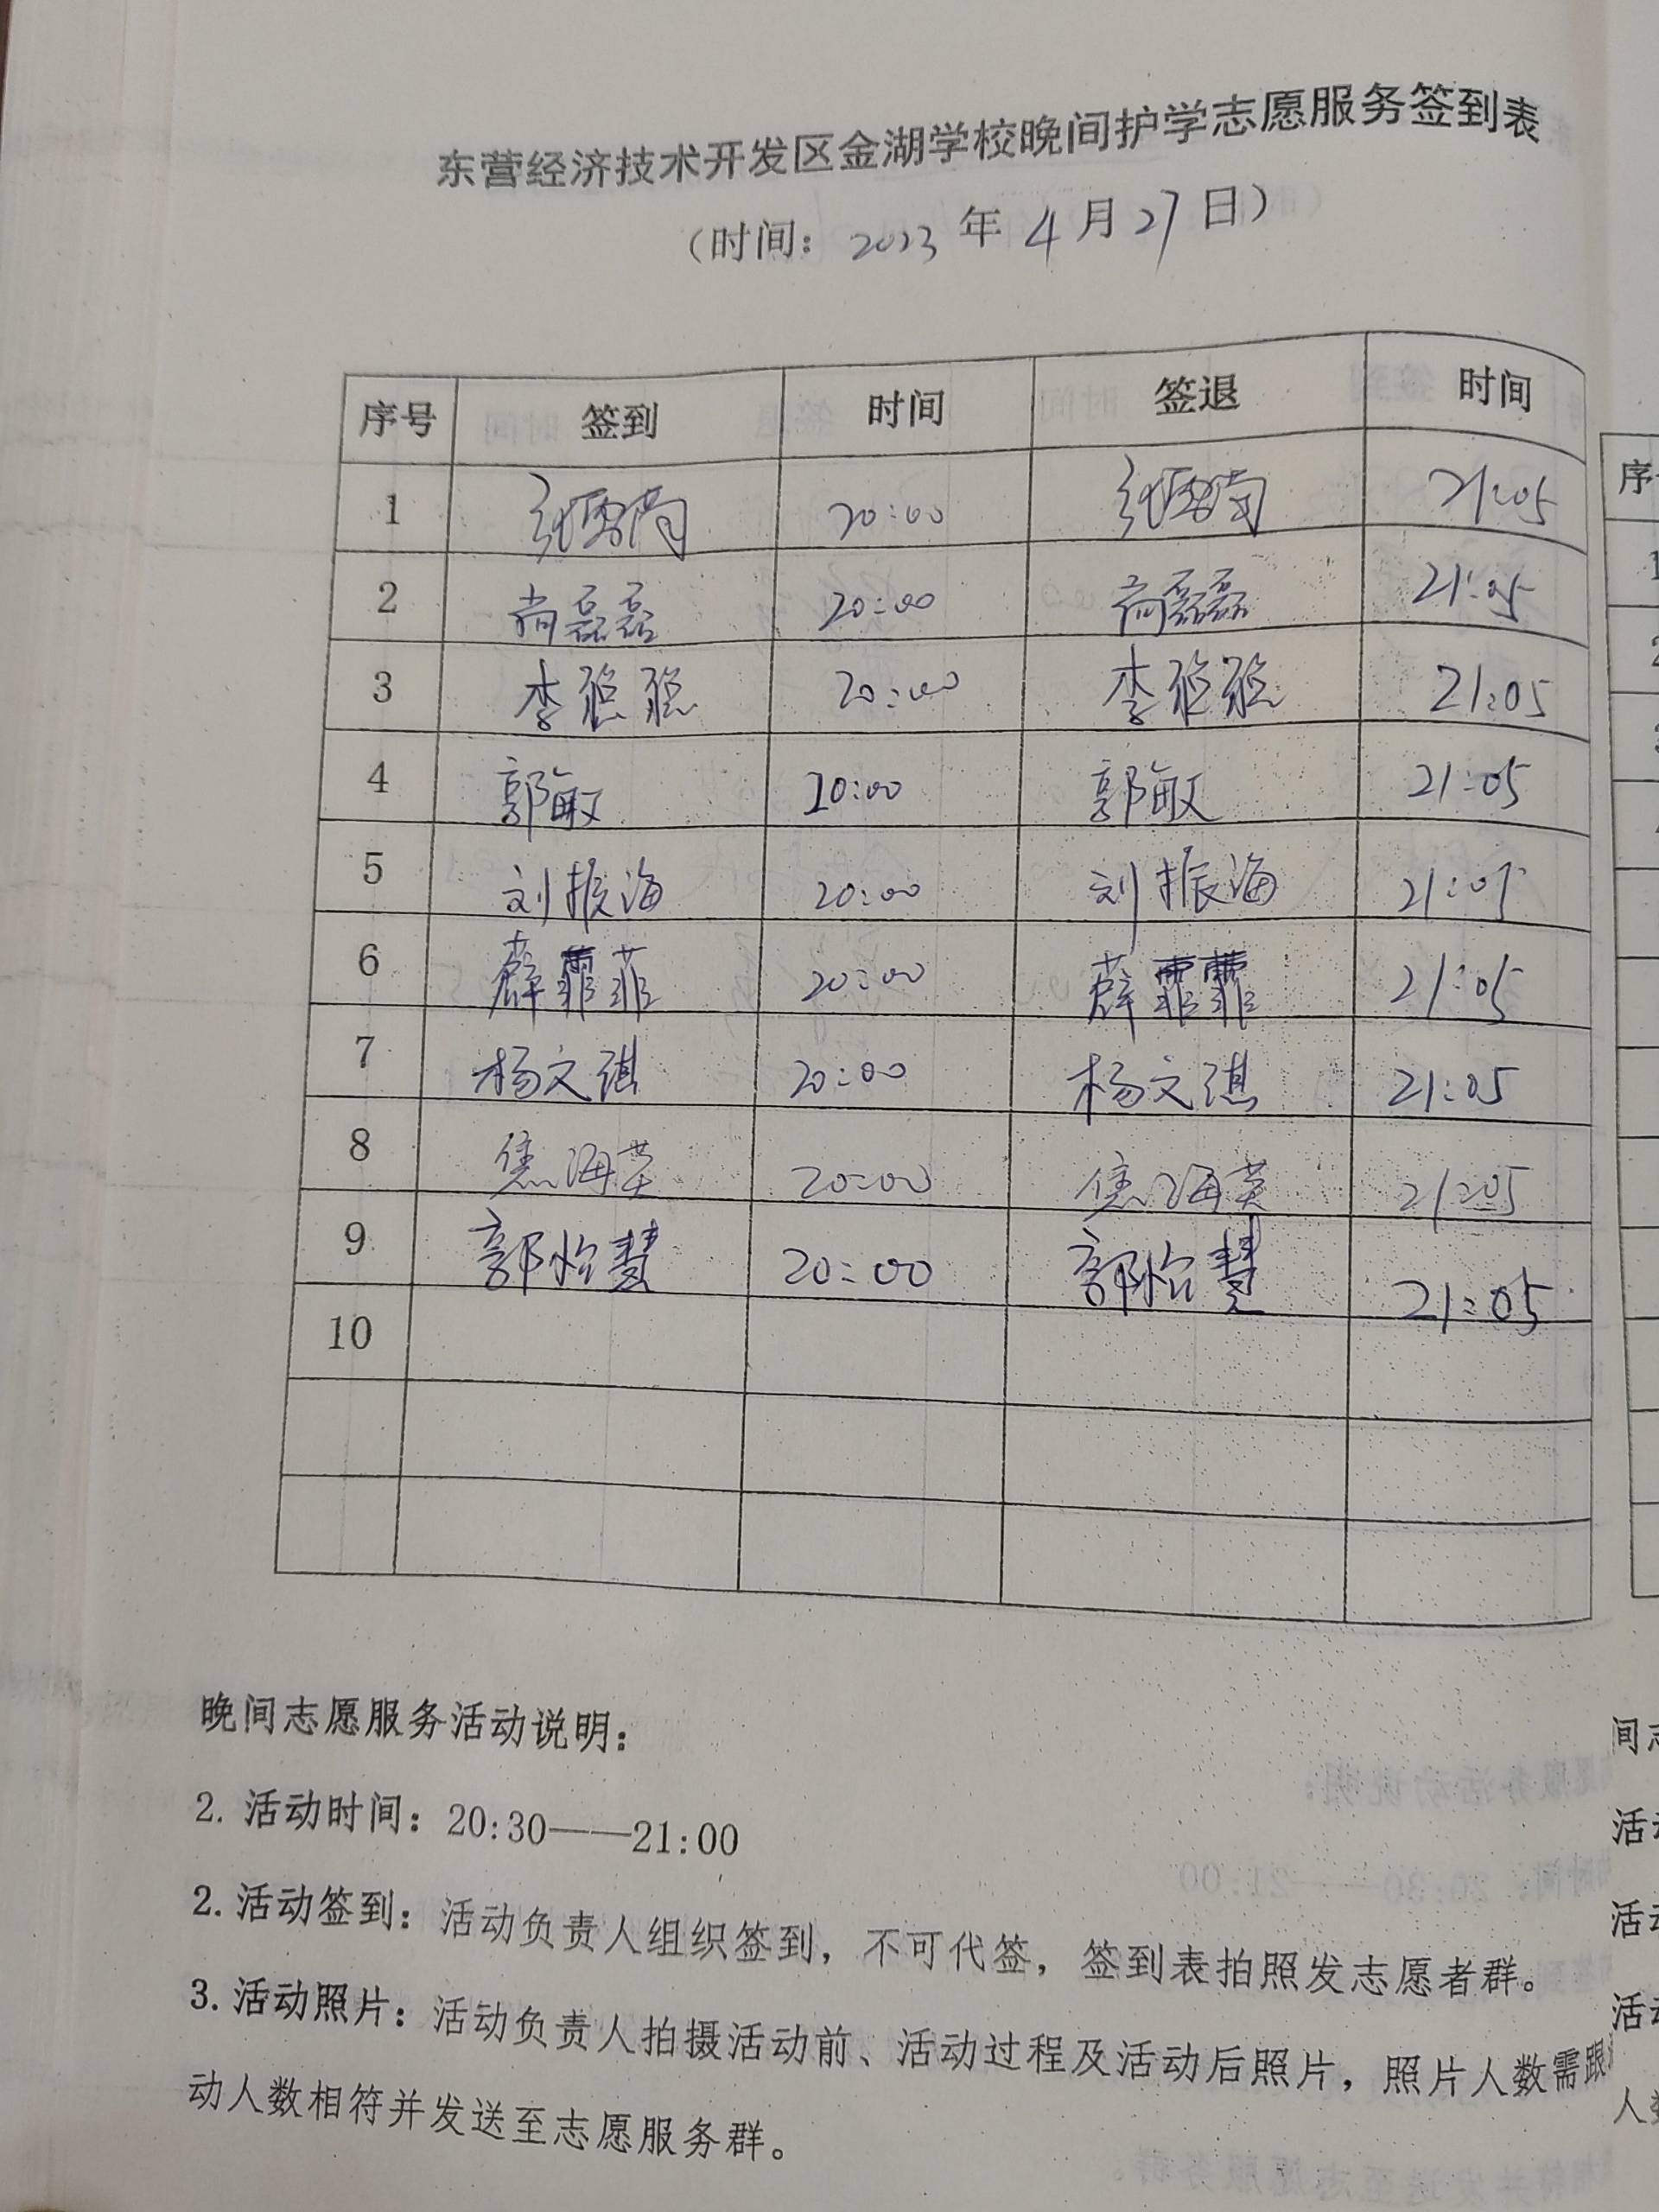 东营经济技术开发区金湖学校晚间护学志愿服务签到表
（时间：2023年4月27日）
序号 签到 时间 签退 时间
1 20:00 21:05
2 尚磊磊 20:00 尚磊磊 21:05
3 李 20:00 李 21:05
4 郭敏 20:00 郭敏 21:05
5 刘振海 20:00 刘振海 21:05
6 薛霏菲 20:00 薛霏霏 21:05
7 杨文琪 20:00 杨文琪 21:05
8 焦海英 20:00 焦海英 21:05
9 郭怡慧 20:00 郭怡慧 21:05
10
晚间志愿服务活动说明：
2. 活动时间：20:30——21:00
2. 活动签到：活动负责人组织签到，不可代签，签到表拍照发志愿者群。
3. 活动照片：活动负责人拍摄活动前、活动过程及活动后照片，照片人数需跟
动人数相符并发送至志愿服务群。
序
1
2
间志
活动
活动
活动
人数